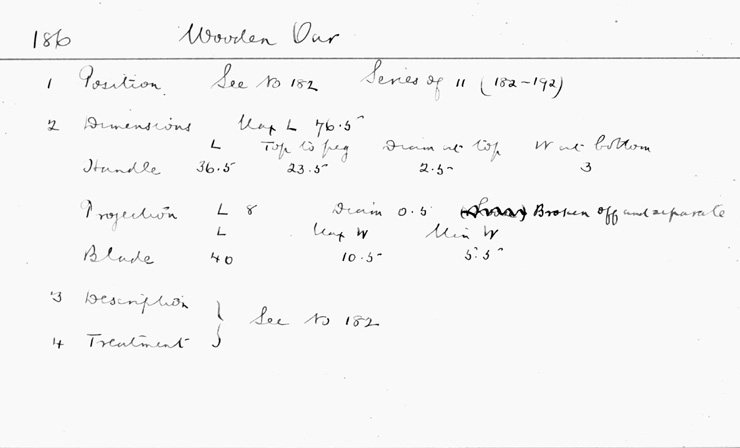 186 Wooden Oar
1 Position. See No 182 Series of 11 (182-192)
2 Dimensions Max L 76.5
L Top to peg Diam at top W at bottom
Handle 36.5 23.5 2.5 3
Projection L 8 Diam 0.5 Broken off and separate
L Max W Min W
Blade 40 10.5 5.5
3 Description } See No 182
4 Treatment